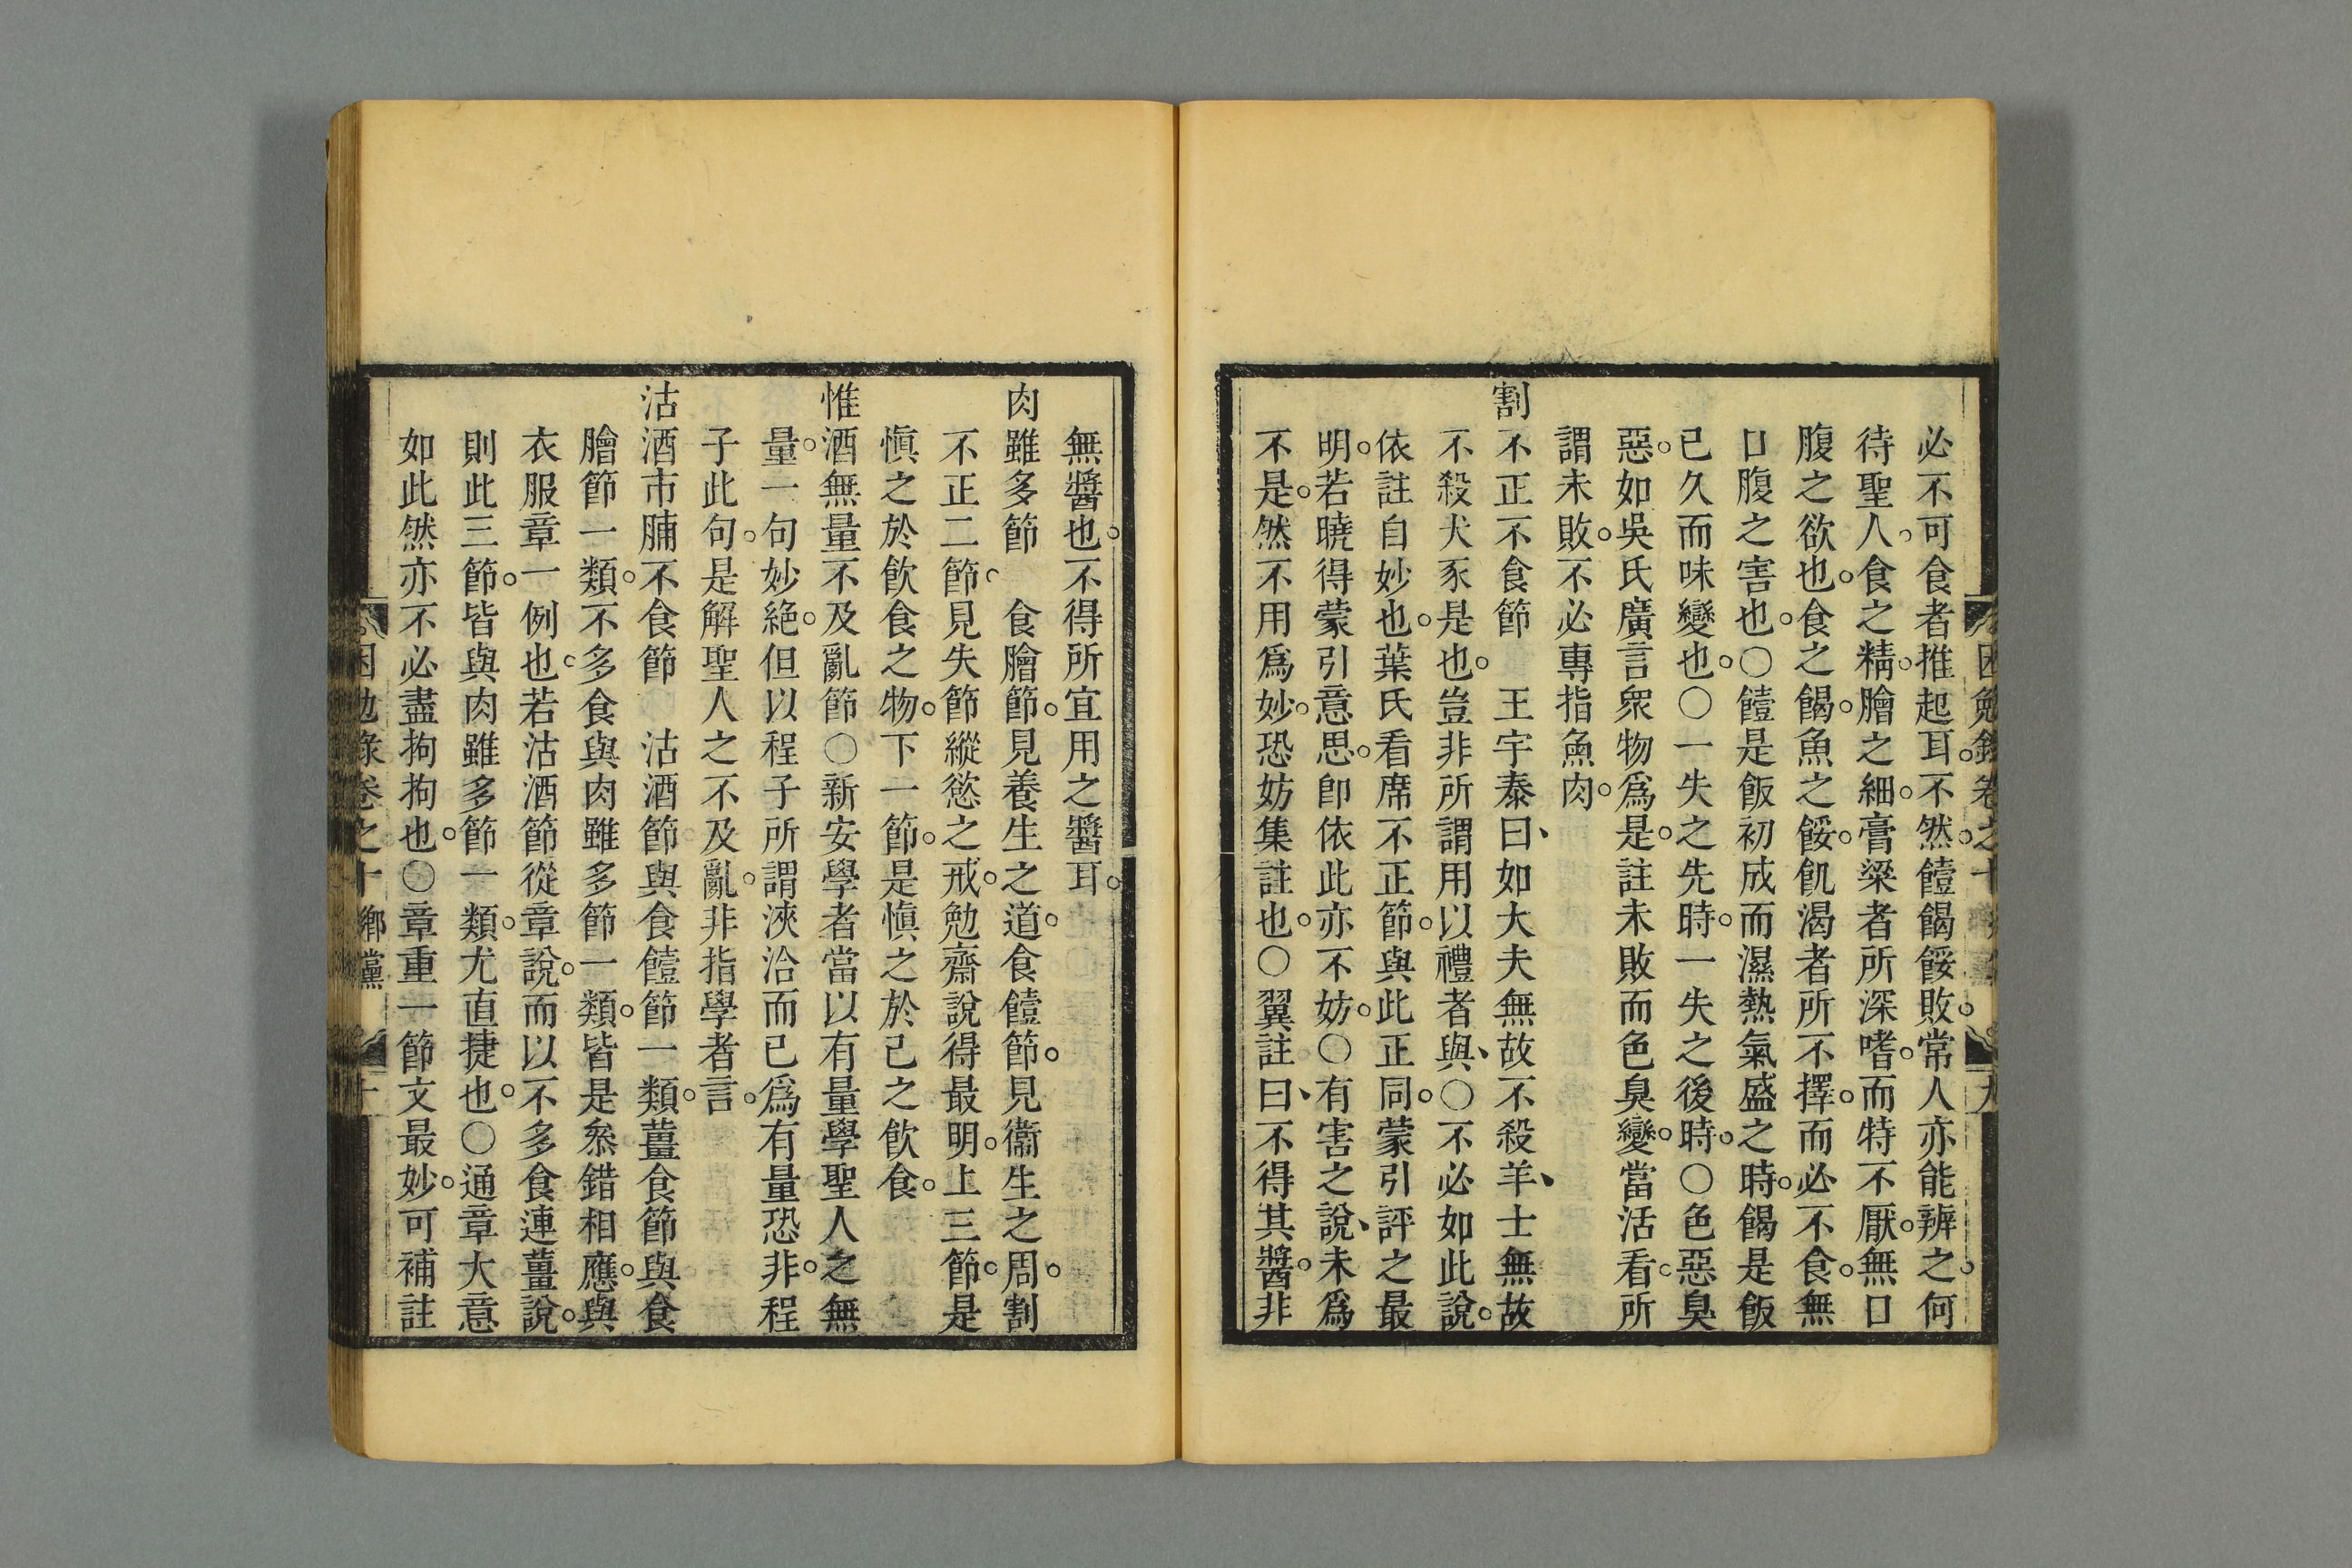 必不可食者推起耳。不然。饐餲餒敗。常人亦能辨之。何
待聖人。食之精。膾之細。膏粱者所深嗜。而特不厭。無口
腹之欲也。食之餲。魚之餒。飢渴者所不擇。而必不食。無
口腹之害也。〇饐是飯初成而濕熱氣盛之時。餲是飯
已久而味變也。〇一失之先時。一失之後時。〇色惡臭
惡。如吳氏廣言衆物爲是。註未敗而色臭變。當活看。所
謂未敗。不必專指魚肉。
割不正不食節　王宇泰曰、如大夫無故不殺羊、士無故
不殺犬豕是也。豈非所謂用以禮者與、〇不必如此說。
依註自妙也。葉氏看席不正節。與此正同。蒙引評之最
明。若曉得蒙引意思。卽依此亦不妨。〇有害之說、未爲
不是。然不用爲妙。恐妨集註也。〇翼註曰、不得其醬。非
無醬也。不得所宜用之醬耳。
肉雖多節　食膾節。見養生之道。食饐節。見衞生之周。割
不正二節。見失節縱慾之戒。勉齋說得最明。上三節。是
愼之於飮食之物。下一節。是愼之於己之飮食。
惟酒無量不及亂節〇新安學者當以有量學聖人之無
量。一句妙絶。但以程子所謂浹洽而已爲有量恐非。程
子此句。是解聖人之不及亂。非指學者言。
沽酒市脯不食節　沽酒節與食饐節一類。薑食節與食
膾節一類。不多食與肉雖多節一類。皆是叅錯相應。與
衣服章一例也。若沽酒節從章說。而以不多食連薑說。
則此三節。皆與肉雖多節一類。尤直捷也。〇通章大意
如此然亦不必盡拘拘也。〇章重一節文最妙。可補註
困勉錄卷之十
九
困勉錄卷之十
鄉黨
十